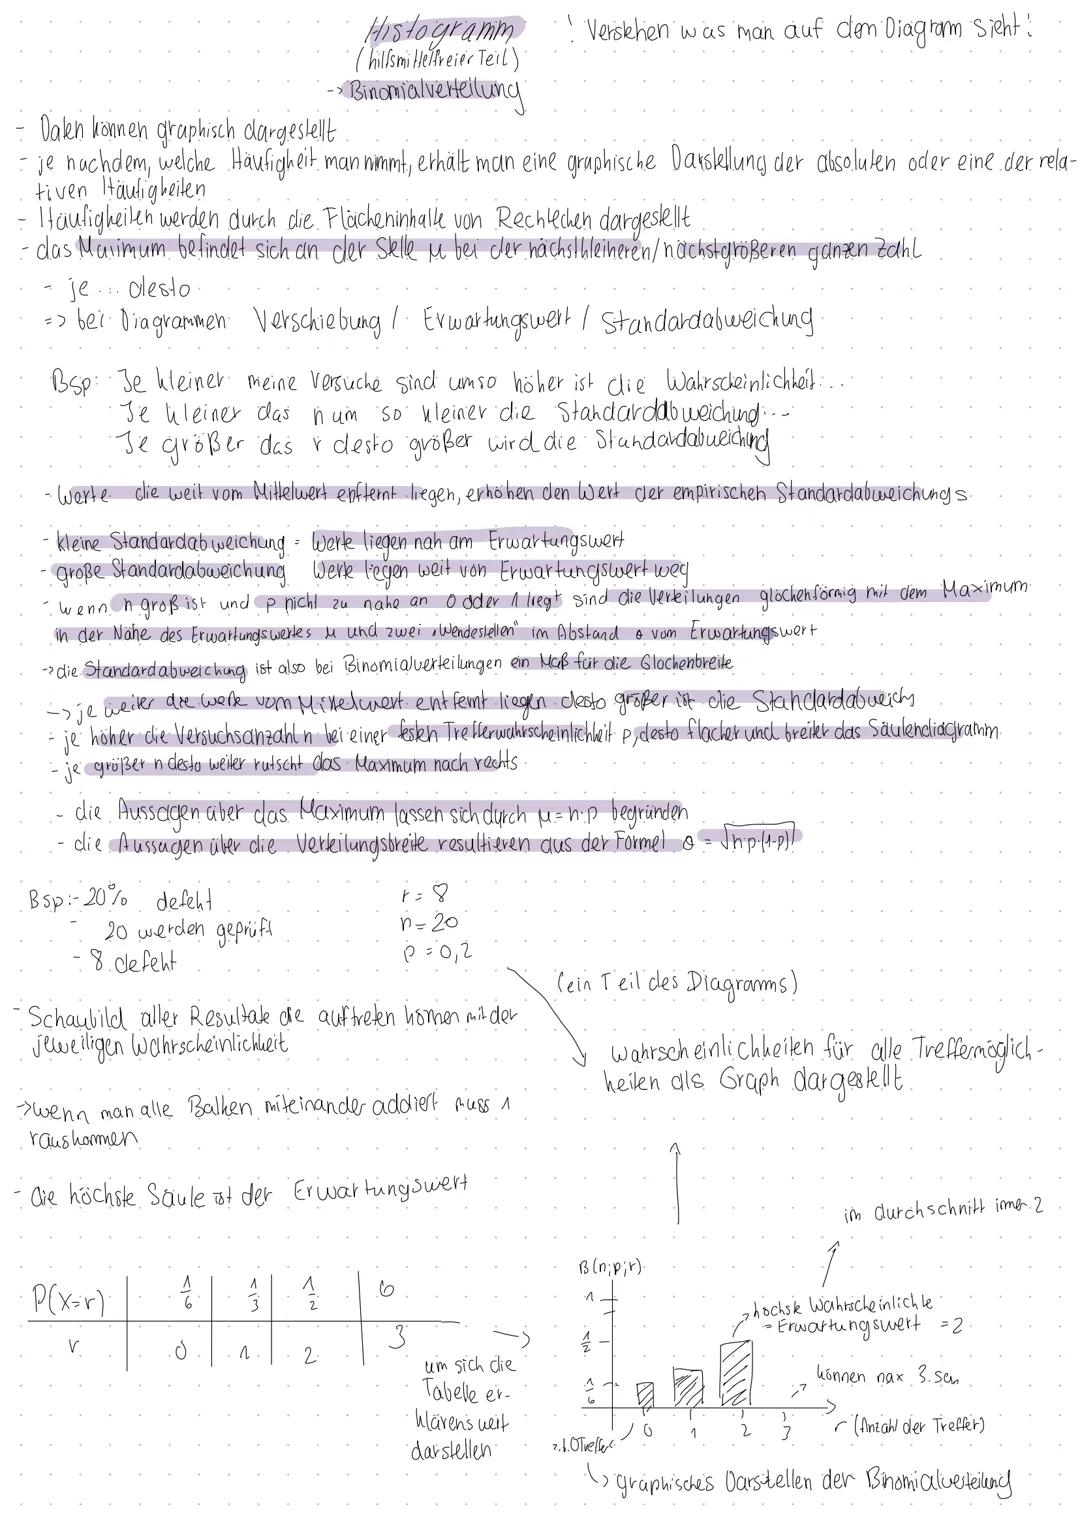 Histogramm
! Verstehen was man auf dem Diagram sieht!
(hilfsmittelfreier Teil)
-> Binomialverteilung
- Daten können graphisch dargestellt
- je nachdem, welche Häufigkeit man nimmt, erhält man eine graphische Darstellung der absoluten oder eine der rela-
tiven Häufigkeiten
- Häufigkeiten werden durch die Flächeninhalte von Rechtecken dargestellt
- das Maximum befindet sich an der Stelle μ bei der nächstkleineren/nächstgrößeren ganzen Zahl
- je ... desto
=> bei Diagrammen Verschiebung / Erwartungswert / Standardabweichung
Bsp: Je kleiner meine Versuche sind umso höher ist die Wahrscheinlichkeit...
Je kleiner das n um so kleiner die Standardabweichung...
Je größer das r desto größer wird die Standardabweichung
- Werte die weit vom Mittelwert entfernt liegen, erhöhen den Wert der empirischen Standardabweichung s
- kleine Standardabweichung = Werte liegen nah am Erwartungswert
- große Standardabweichung Werte liegen weit von Erwartungswert weg
- wenn n groß ist und p nicht zu nahe an 0 oder 1 liegt sind die Verteilungen glockenförmig mit dem Maximum
in der Nähe des Erwartungswertes μ und zwei „Wendestellen" im Abstand σ vom Erwartungswert
-> die Standardabweichung ist also bei Binomialverteilungen ein Maß für die Glockenbreite
-> je weiter die werte vom Mittelwert entfernt liegen desto größer ist die Standardabweich
- je höher die Versuchsanzahl n bei einer festen Trefferwahrscheinlichkeit p, desto flacher und breiter das Säulendiagramm
- je größer n desto weiter rutscht das Maximum nach rechts
- die Aussagen über das Maximum lassen sich durch μ = n·p begründen
- die Aussagen über die Verteilungsbreite resultieren aus der Formel σ = √n·p·(1-p)
Bsp:- 20% defekt
r = 8
- 20 werden geprüft
n = 20
- 8 defekt
p = 0,2
(ein Teil des Diagramms)
- Schaubild aller Resultate die auftreten können mit der
jeweiligen Wahrscheinlichkeit
Wahrscheinlichkeiten für alle Treffermöglich-
keiten als Graph dargestellt
-> wenn man alle Balken miteinander addiert muss 1
rauskommen
- die höchste Säule ist der Erwartungswert
im durchschnitt immer 2
P(X=r) 1/6 1/3 1/2 0
r 0 1 2 3
->
um sich die
Tabelle er-
klären
darstellen
B(n;p;r)
1
1/2
1/6
höchste Wahrscheinlichke
= Erwartungswert = 2
können max 3 sein
0 1 2 3
r (Anzahl der Treffer)
z.b. 0 Treffer
graphisches Darstellen der Binomialverteilung